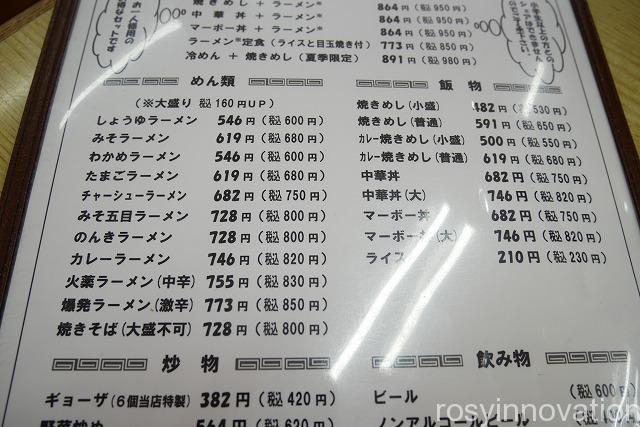 焼きめし + ラーメン※ 864円(税950円)
中華丼 + ラーメン※ 864円(税950円)
マーボー丼 + ラーメン※ 864円(税950円)
ラーメン※定食(ライスと目玉焼き付) 773円(税850円)
冷めん + 焼きめし(夏季限定) 891円(税980円)
お一人様用の
お得なセットです
小学生以上の方との
シェアはできません
のでご了承下さい
めん類
(※大盛り 税160円UP)
しょうゆラーメン 546円(税600円)
みそラーメン 619円(税680円)
わかめラーメン 546円(税600円)
たまごラーメン 619円(税680円)
チャーシューラーメン 682円(税750円)
みそ五目ラーメン 728円(税800円)
のんきラーメン 728円(税800円)
カレーラーメン 746円(税820円)
火薬ラーメン(中辛) 755円(税830円)
爆発ラーメン(激辛) 773円(税850円)
焼きそば(大盛不可) 728円(税800円)
飯物
焼きめし(小盛) 482円(税530円)
焼きめし(普通) 591円(税650円)
カレー焼きめし(小盛) 500円(税550円)
カレー焼きめし(普通) 619円(税680円)
中華丼 682円(税750円)
中華丼(大) 746円(税820円)
マーボー丼 682円(税750円)
マーボー丼(大) 746円(税820円)
ライス 210円(税230円)
炒物
ギョーザ(6個当店特製) 382円(税420円)
野菜炒め 564円(税620円)
飲み物
ビール (税600円)
ノンアルコールビール
rosyinnovation